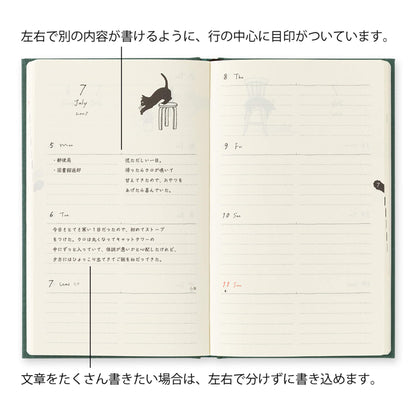 左右で別の内容が書けるように、行の中心に目印がついています。
7
July
8 Thu
5 Mon
・郵便局
・図書館返却
慌ただしい一日。
帰ったらクロが鳴いて
甘えてきたので、おやつを
あげたら喜んでいた。
9 Fri
7
6 Tue
今日はとても寒い1日だったので、初めてストーブ
をつけた。クロは丸くなってキャットタワーの
中にずっと入っていて、体調が悪いかと心配したけれど、
夕方にはひょっこり出てきてご飯をねだってきた。
10 Sat
7 Wed
文章をたくさん書きたい場合は、左右で分けずに書き込めます。